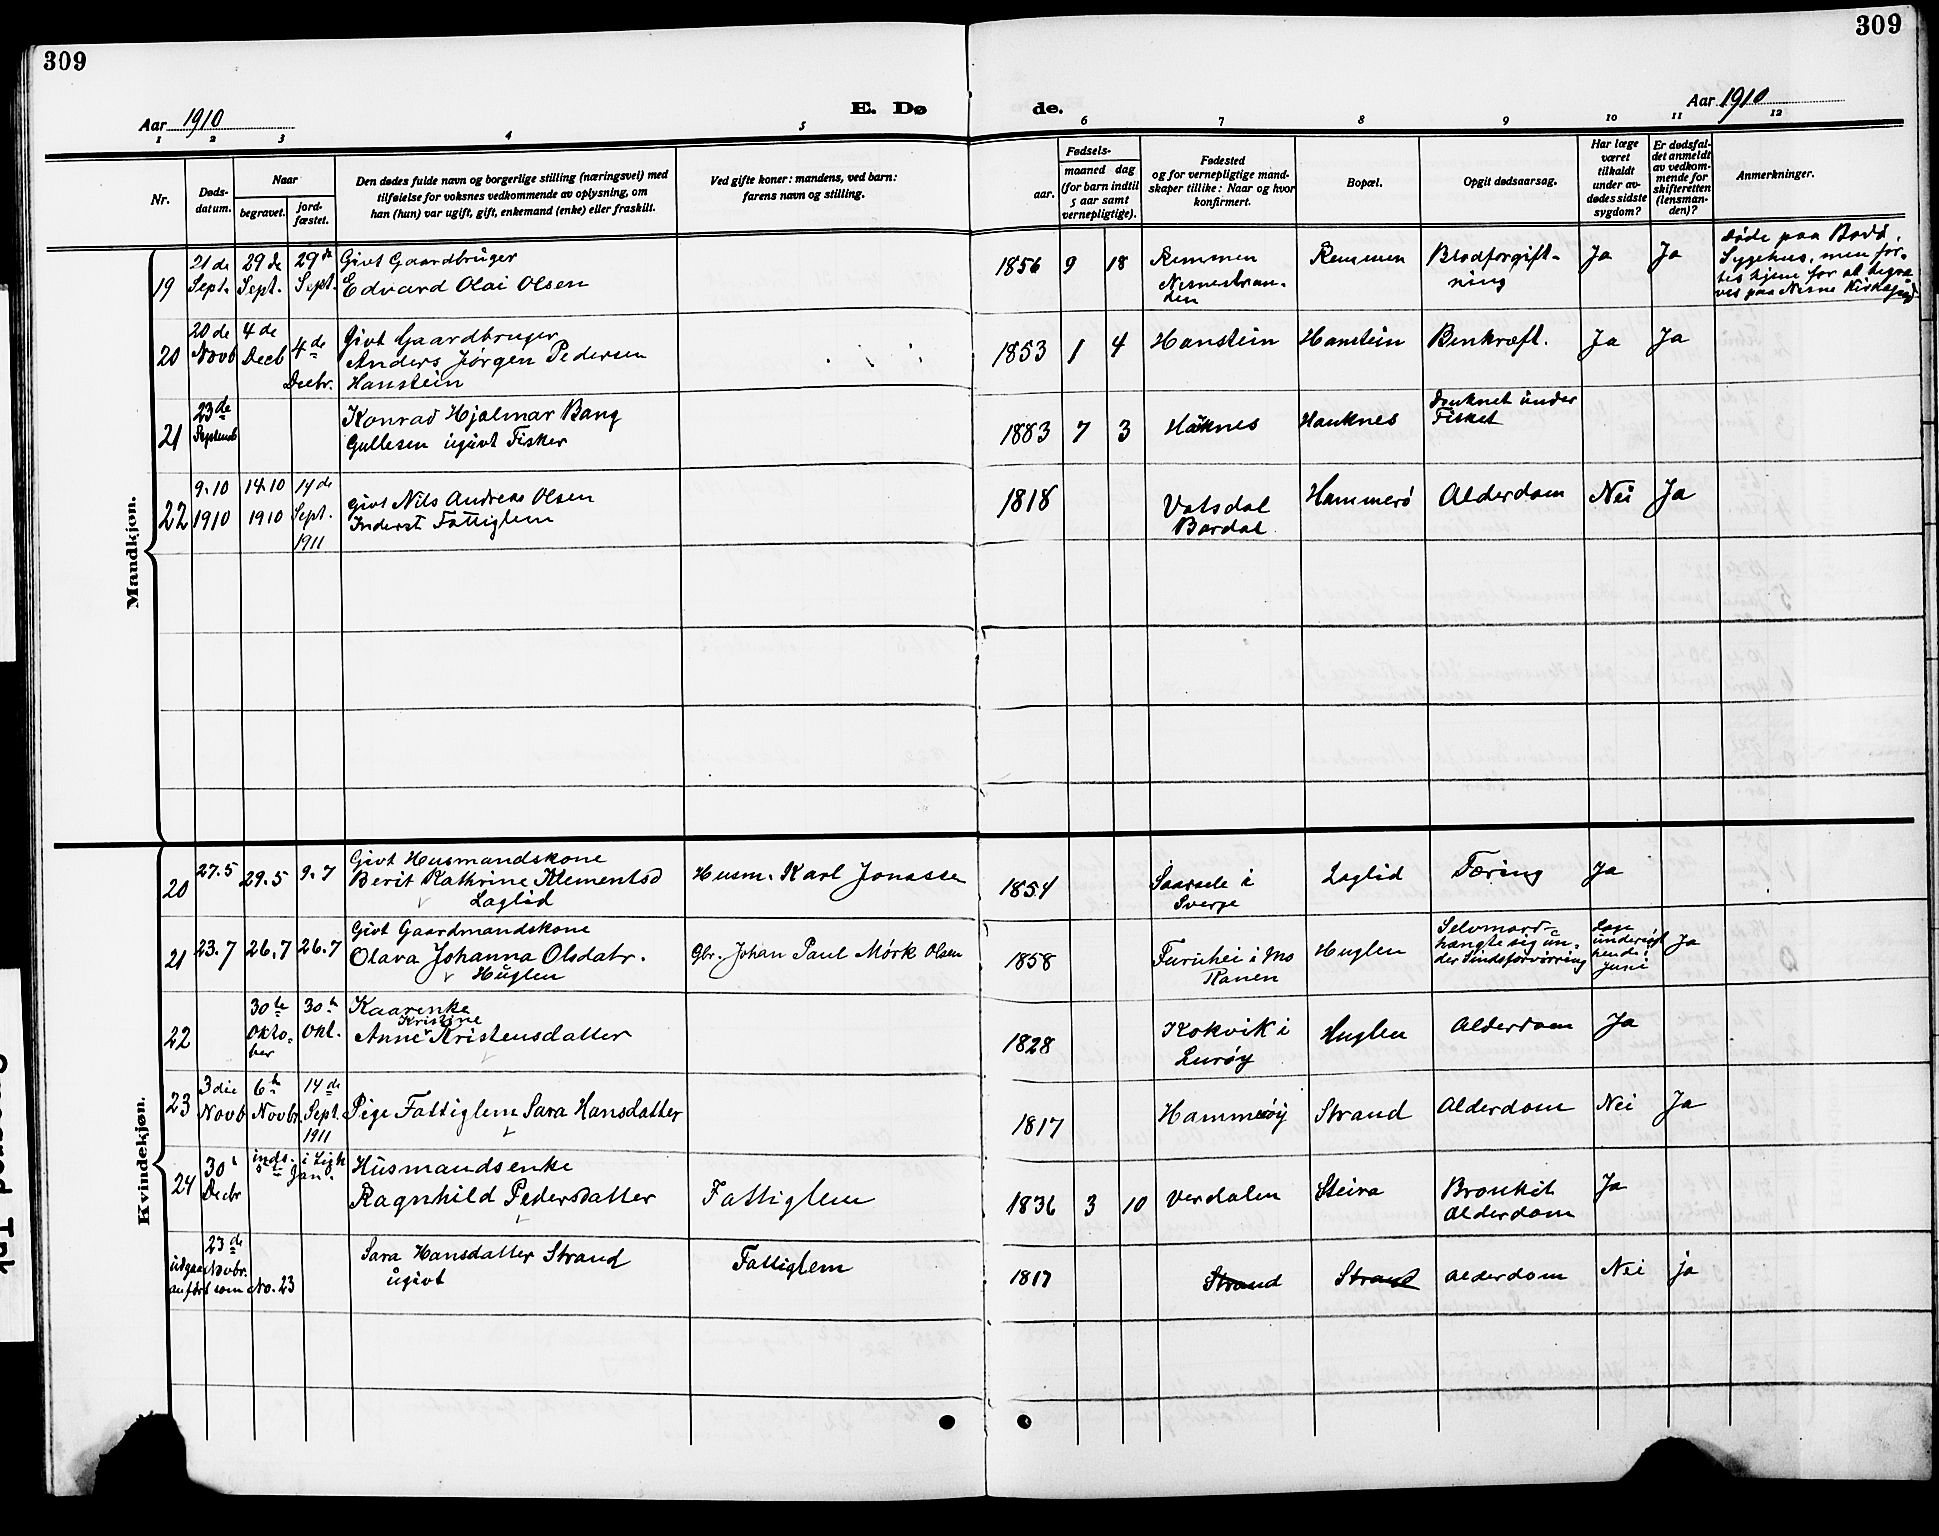 309
309
Aar 1910
E. Dø
de.
Aar 1910
1 2 3 4 5 6 7 8 9 10 11 12
Nr.
Døds-
datum.
Naar
begravet.
jord-
fæstet.
Den dødes fulde navn og borgerlige stilling (næringsvei) med
tilføielse for voksnes vedkommende av oplysning, om
han (hun) var ugift, gift, enkemand (enke) eller fraskilt.
Ved gifte koner: mandens, ved barn:
farens navn og stilling.
Fødsels-
aar.
maaned dag
(for barn indtil
5 aar samt
vernepligtige).
Fødested
og for vernepligtige mand-
skaper tillike: Naar og hvor
konfirmert.
Bopæl.
Opgit dødsaarsag.
Har læge
været
tilkaldt
under av-
dødes sidste
sygdom?
Er dødsfal-
det anmeldt
av vedkom-
mende for
skifteretten
(lensman-
den)?
Anmerkninger.
Mandkjøn.
19
21 de
Sept.
29 de
Sept.
29 de
Sept.
Givt Gaardbruger
Edvard Olai Olsen
1856 9 18
Remmen
Nesnestran-
den
Remmen
Blodforgift-
ning
Ja
Ja
døde paa Bodø
Sygehus, men før-
tes hjem for at begra-
ves paa Nesne Kirkegård
20
20 de
Novb
4 de
Decb
4 de
Decbr.
Givt Gaardbruger
Anders Jørgen Pedersen
Hanstein
1853 1 4
Hanstein
Hanstein
Benkræft.
Ja
Ja
21
23 de
Septemb
Konrad Hjalmar Bang
Gullesen ugivt Fisker
1883 7 3
Håknes
Hauknes
Druknet under
Fisket
22
9.10
1910
14.10
1910
14 de
Sept.
1911
Givt Nils Andreas Olsen
Inderst Fattiglem
1818
Vatsdal
Bardal
Hammerö
Alderdom
Nei
Ja
Kvindekjøn.
20
27.5
29.5
9.7
Givt Husmandskone
Berit Kathrine Klementsd
Laglid
Husm. Karl Jonassen
1854
Saarsele i
Sverge
Laglid
Tæring
Ja
21
23.7
26.7
26.7
Givt Gaardmandskone
Olava Johanna Olsdatr.
Huglen
Gbr. Johan Paul Mørk Olsen
1858
Furuhei i Mo
Ranen
Huglen
Selvmord-
hængte sig un-
der Sindsforvirring
Læge
undersøgt
hende i
Juni
Ja
22
30 te
Okto-
ber
30 te
Okt.
Kaarenke
Kristine
Anne Kristensdatter
1828
Kokvik i
Lurøy
Huglen
Alderdom
Ja
23
3 die
Novb
6 te
Novbr.
14 de
Sept.
1911
Pige Fattiglem Sara Hansdatter
1817
Hammerøy
Strand
Alderdom
Nei
Ja
24
30
Decbr
inds. i Ligk
5te Jan.
Husmandsenke
Ragnhild Pedersdatter
Fattiglem
1836 3 10
Verdalen
Steira
Bronkit
Alderdom
Ja
23 de
Novbr.
utgaar
anført som No. 23
Sara Hansdatter Strand
ugivt
Fattiglem
1817
Strand
Strand
Alderdom
Nei
ja